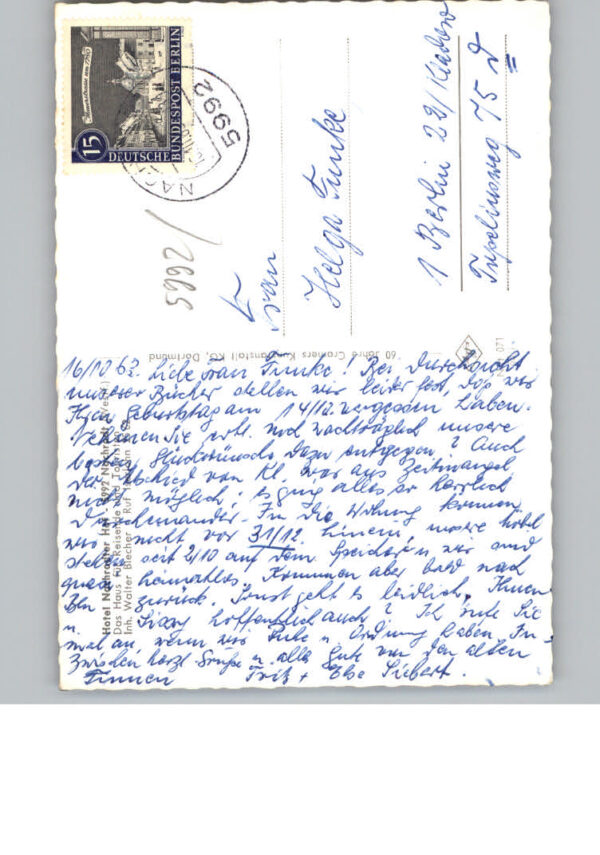 DEUTSCHE BUNDESPOST BERLIN
15
5992
5992/
Frau
Helga Funke
1 Berlin 22/Kladow
75 D
60 Jahre Cramers Kunstanstalt KG, Dortmund
Hotel Nachrodter Hof · 5992 Nachrodt (Westf.)
Das Haus für Reisende und Touristen
Inh. Walter Blecher · Ruf
16/10 63. Liebe Frau Funke! Bei Durchsicht
unserer Bücher stellen wir leider fest, daß wir
Ihren Geburtstag am 14/10. vergessen haben.
Nehmen Sie erst noch nachträglich unsere
besten Glückwünsche dazu entgegen? Auch
der Abschied von Kl. war aus Zeitmangel
nicht möglich; es ging alles so herrlich
Durcheinander. In die Wohnung können
wir nicht vor 31/12. hinein, unsere Möbel
stehen seit 2/10 auf dem Speicher u. wir sind
quasi heimatlos. Kommen aber bald nach
Bln zurück. Sonst geht es leidlich, Ihnen
u. Sissy hoffentlich auch? Ich rufe Sie
mal an, wenn wir Ruhe u. Ordnung haben. In-
zwischen herzl. Grüße u. alles Gute von den alten
Fritz + Else Siebert.